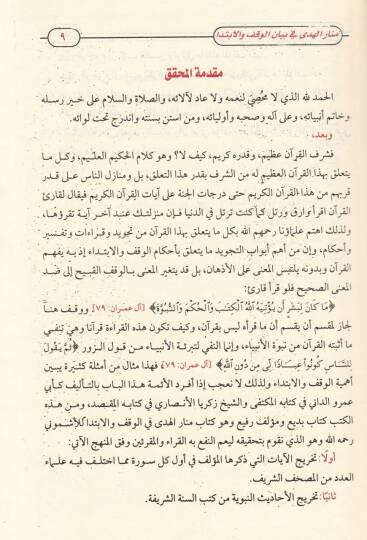 منار الهدى في بيان الوقف والابتدا
٩
مقدمة المحقق
الحمد لله الذي لا محصِيَ لنعمه ولا عاد لآلائه، والصلاة والسلام على خير رسله
وخاتم أنبيائه، وعلى آله وصحبه وأوليائه، ومن استن بسنته واندرج تحت لوائه.
وبعد،
فشرف القرآن عظيم، وقدره كريم، كيف لا؟ وهو كلام الحكيم العليم، وكل ما
يتعلق بهذا القرآن العظيم له من الشرف بقدر هذا التعلق، بل ومنازل الناس على قدر
قربهم من هذا القرآن الكريم حتى درجات الجنة على آيات القرآن الكريم فيقال لقارئ
القرآن اقرأ وارق ورتل كما كنت ترتل في الدنيا فإن منزلتك عند آخر آية تقرؤها،
ولذلك اهتم علماؤنا رحمهم الله بكل ما يتعلق بالقرآن من تجويد وقراءات وتفسير
وأحكام، وإن من أهم أبواب التجويد ما يتعلق بأحكام الوقف والابتداء إذ به يفهم
القرآن وبدونه يلتبس المعنى على الأذهان، بل قد يتغير المعنى بالوقف القبيح إلى ضد
المعنى الصحيح فلو قرأ قارئ:
﴿مَا كَانَ لِبَشَرٍ أَن يُؤْتِيَهُ ٱللَّهُ ٱلْكِتَٰبَ وَٱلْحُكْمَ وَٱلنُّبُوَّةَ﴾ [آل عمران: ٧٩] ووقف هنا
لجاز لمقسم أن يقسم أن ما قرأه ليس بقرآن، وكيف تكون هذه القراءة قرآنا وهي تنفي
ما أثبته القرآن من نبوة الأنبياء، وإنما النفي لتبرئة الأنبياء من قول الزور ﴿ثُمَّ يَقُولَ
لِلنَّاسِ كُونُوا۟ عِبَادًا لِّى مِن دُونِ ٱللَّهِ﴾ [آل عمران: ٧٩] فهذا مثال من أمثلة كثيرة يبين
أهمية الوقف والابتداء ولذلك لا نعجب إذا أفرد الأئمة هذا الباب بالتأليف كأبي
عمرو الداني في كتابه المكتفي والشيخ زكريا الأنصاري في كتابه المقصد، ومن هذه
الكتب كتاب بديع ومؤلف رفيع وهو كتاب منار الهدى في الوقف والابتدا للأشموني
رحمه الله وهو الذي نقوم بتحقيقه ليعم النفع به القراء والمقرئين وفق المنهج الآتي:
أولًا: تخريج الآيات التي ذكرها المؤلف في أول كل سورة مما اختلف فيه علماء
العدد من المصحف الشريف.
ثانيًا: تخريج الأحاديث النبوية من كتب السنة الشريفة.